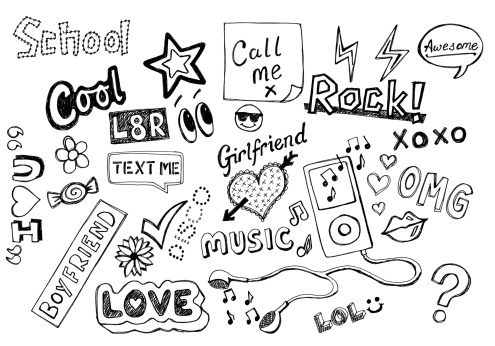 School
Call
me
x
Awesome
Cool
Rock!
L8R
XOXO
Girlfriend
TEXT ME
“I ♡ U”
OMG
BOYFRIEND
MUSIC
LOVE
LOL
?